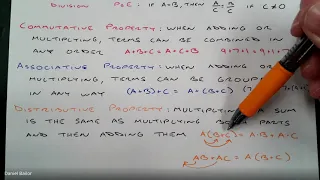 DIVISION PoE: IF A=B, THEN A/C = B/C IF C≠0
COMMUTATIVE PROPERTY: WHEN ADDING OR
MULTIPLYING, TERMS CAN BE COMBINED IN
ANY ORDER A+B+C = A+C+B 9+7+1 = 9+1+7
ASSOCIATIVE PROPERTY: WHEN ADDING OR
MULTIPLYING, TERMS CAN BE GROUP
IN ANY WAY (A+B)+C = A+(B+C)
DISTRIBUTIVE PROPERTY: MULTIPLYING A SUM
IS THE SAME AS MULTIPLYING BOTH PARTS
AND THEN ADDING THEM A(B+C) = A·B+A·C
AB+AC = A(B+C)